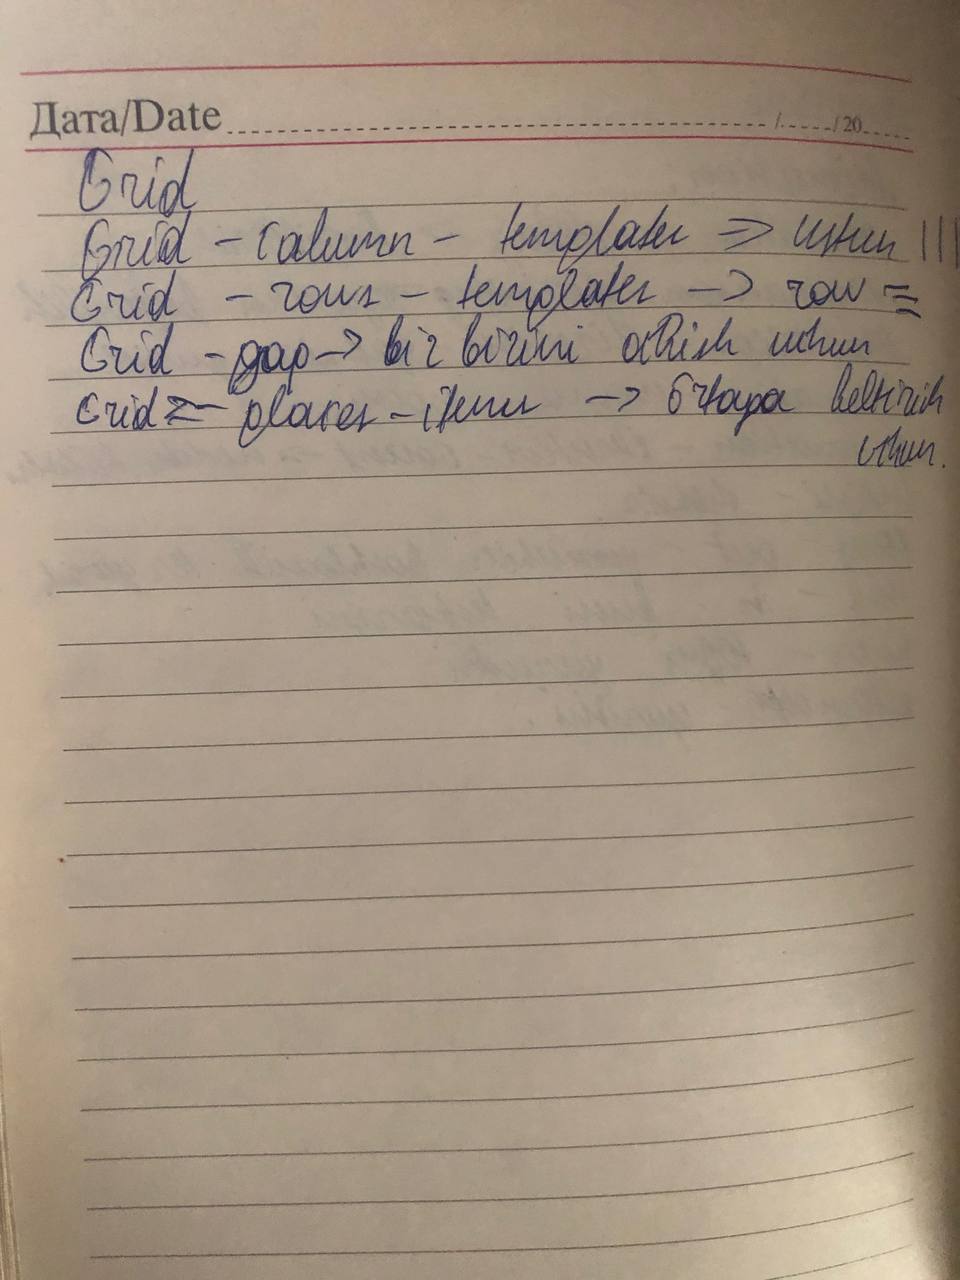 Дата/Date / / 20
Grid
Grid - column - templates => ustun |||
Grid - rows - templates -> row =
Grid - gap -> bir birini ochish uchun
Grid - places - items -> Ortaga keltirish
uchun.